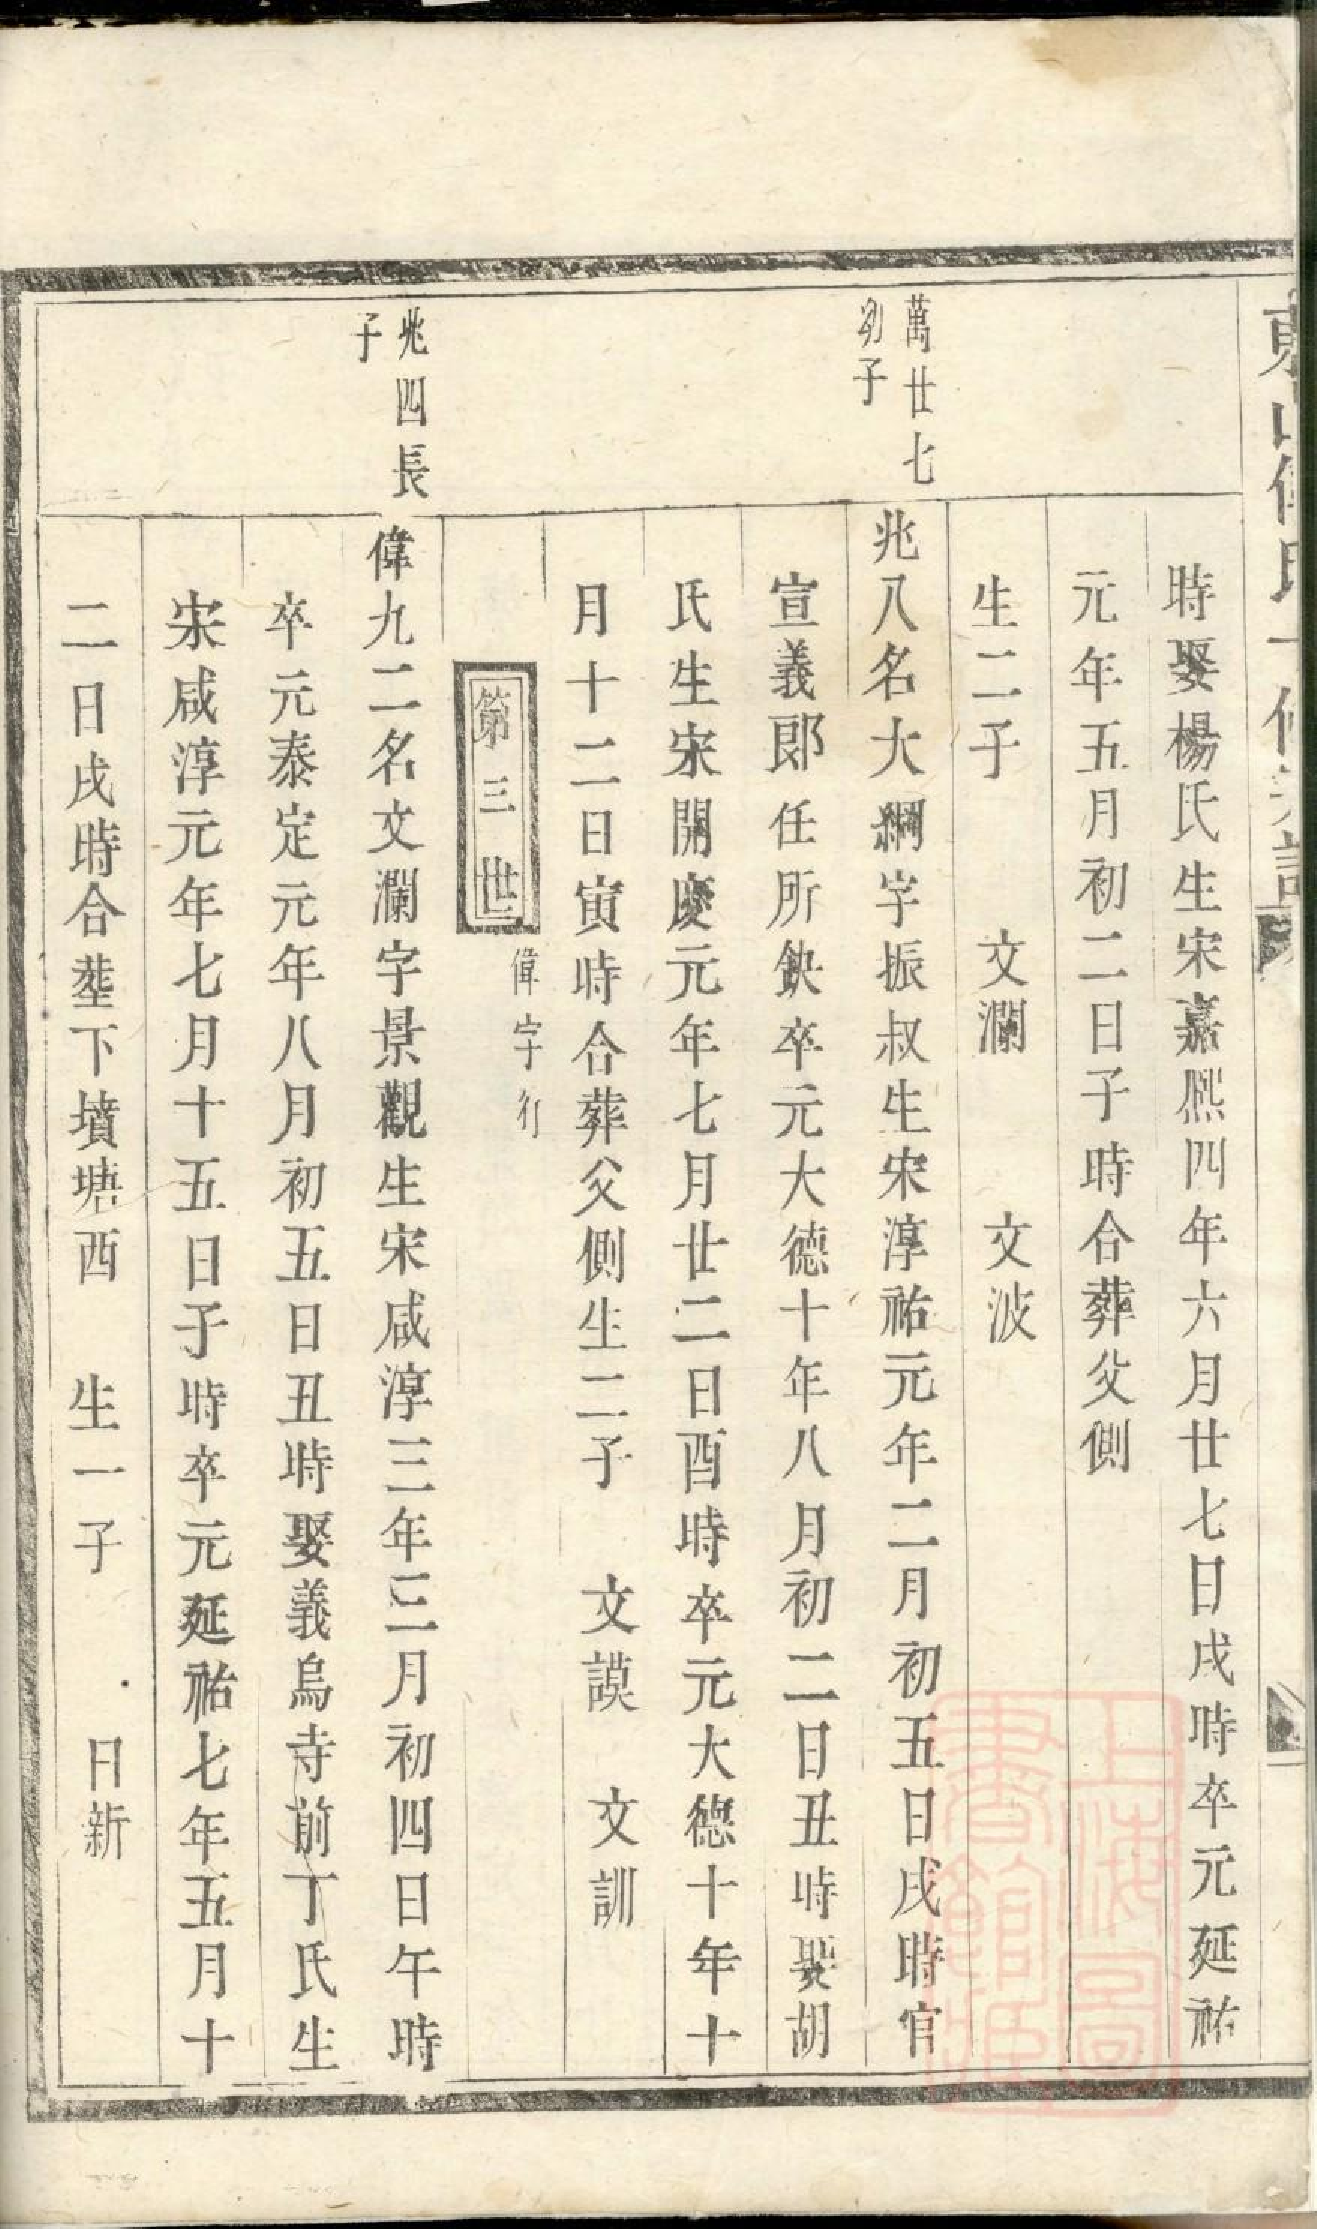 時娶楊氏生宋嘉熈四年六月廿七日戌時卒元延祐
元年五月初二日子時合葬父側
生二子 文瀾 文波
萬廿七
幼子
兆八名大綱字振叔生宋淳祐元年二月初五日戌時官
宣義郎任所缺卒元大德十年八月初二日丑時娶胡
氏生宋開慶元年七月廿二日酉時卒元大德十年十
月十二日寅時合葬父側生二子 文謨 文訓
第三世 偉字行
兆四長
子
偉九二名文瀾字景觀生宋咸淳三年三月初四日午時
卒元泰定元年八月初五日丑時娶義烏寺前丁氏生
宋咸淳元年七月十五日子時卒元延祐七年五月十
二日戌時合塟下墳塘西 生一子 日新
上海圖
書館藏